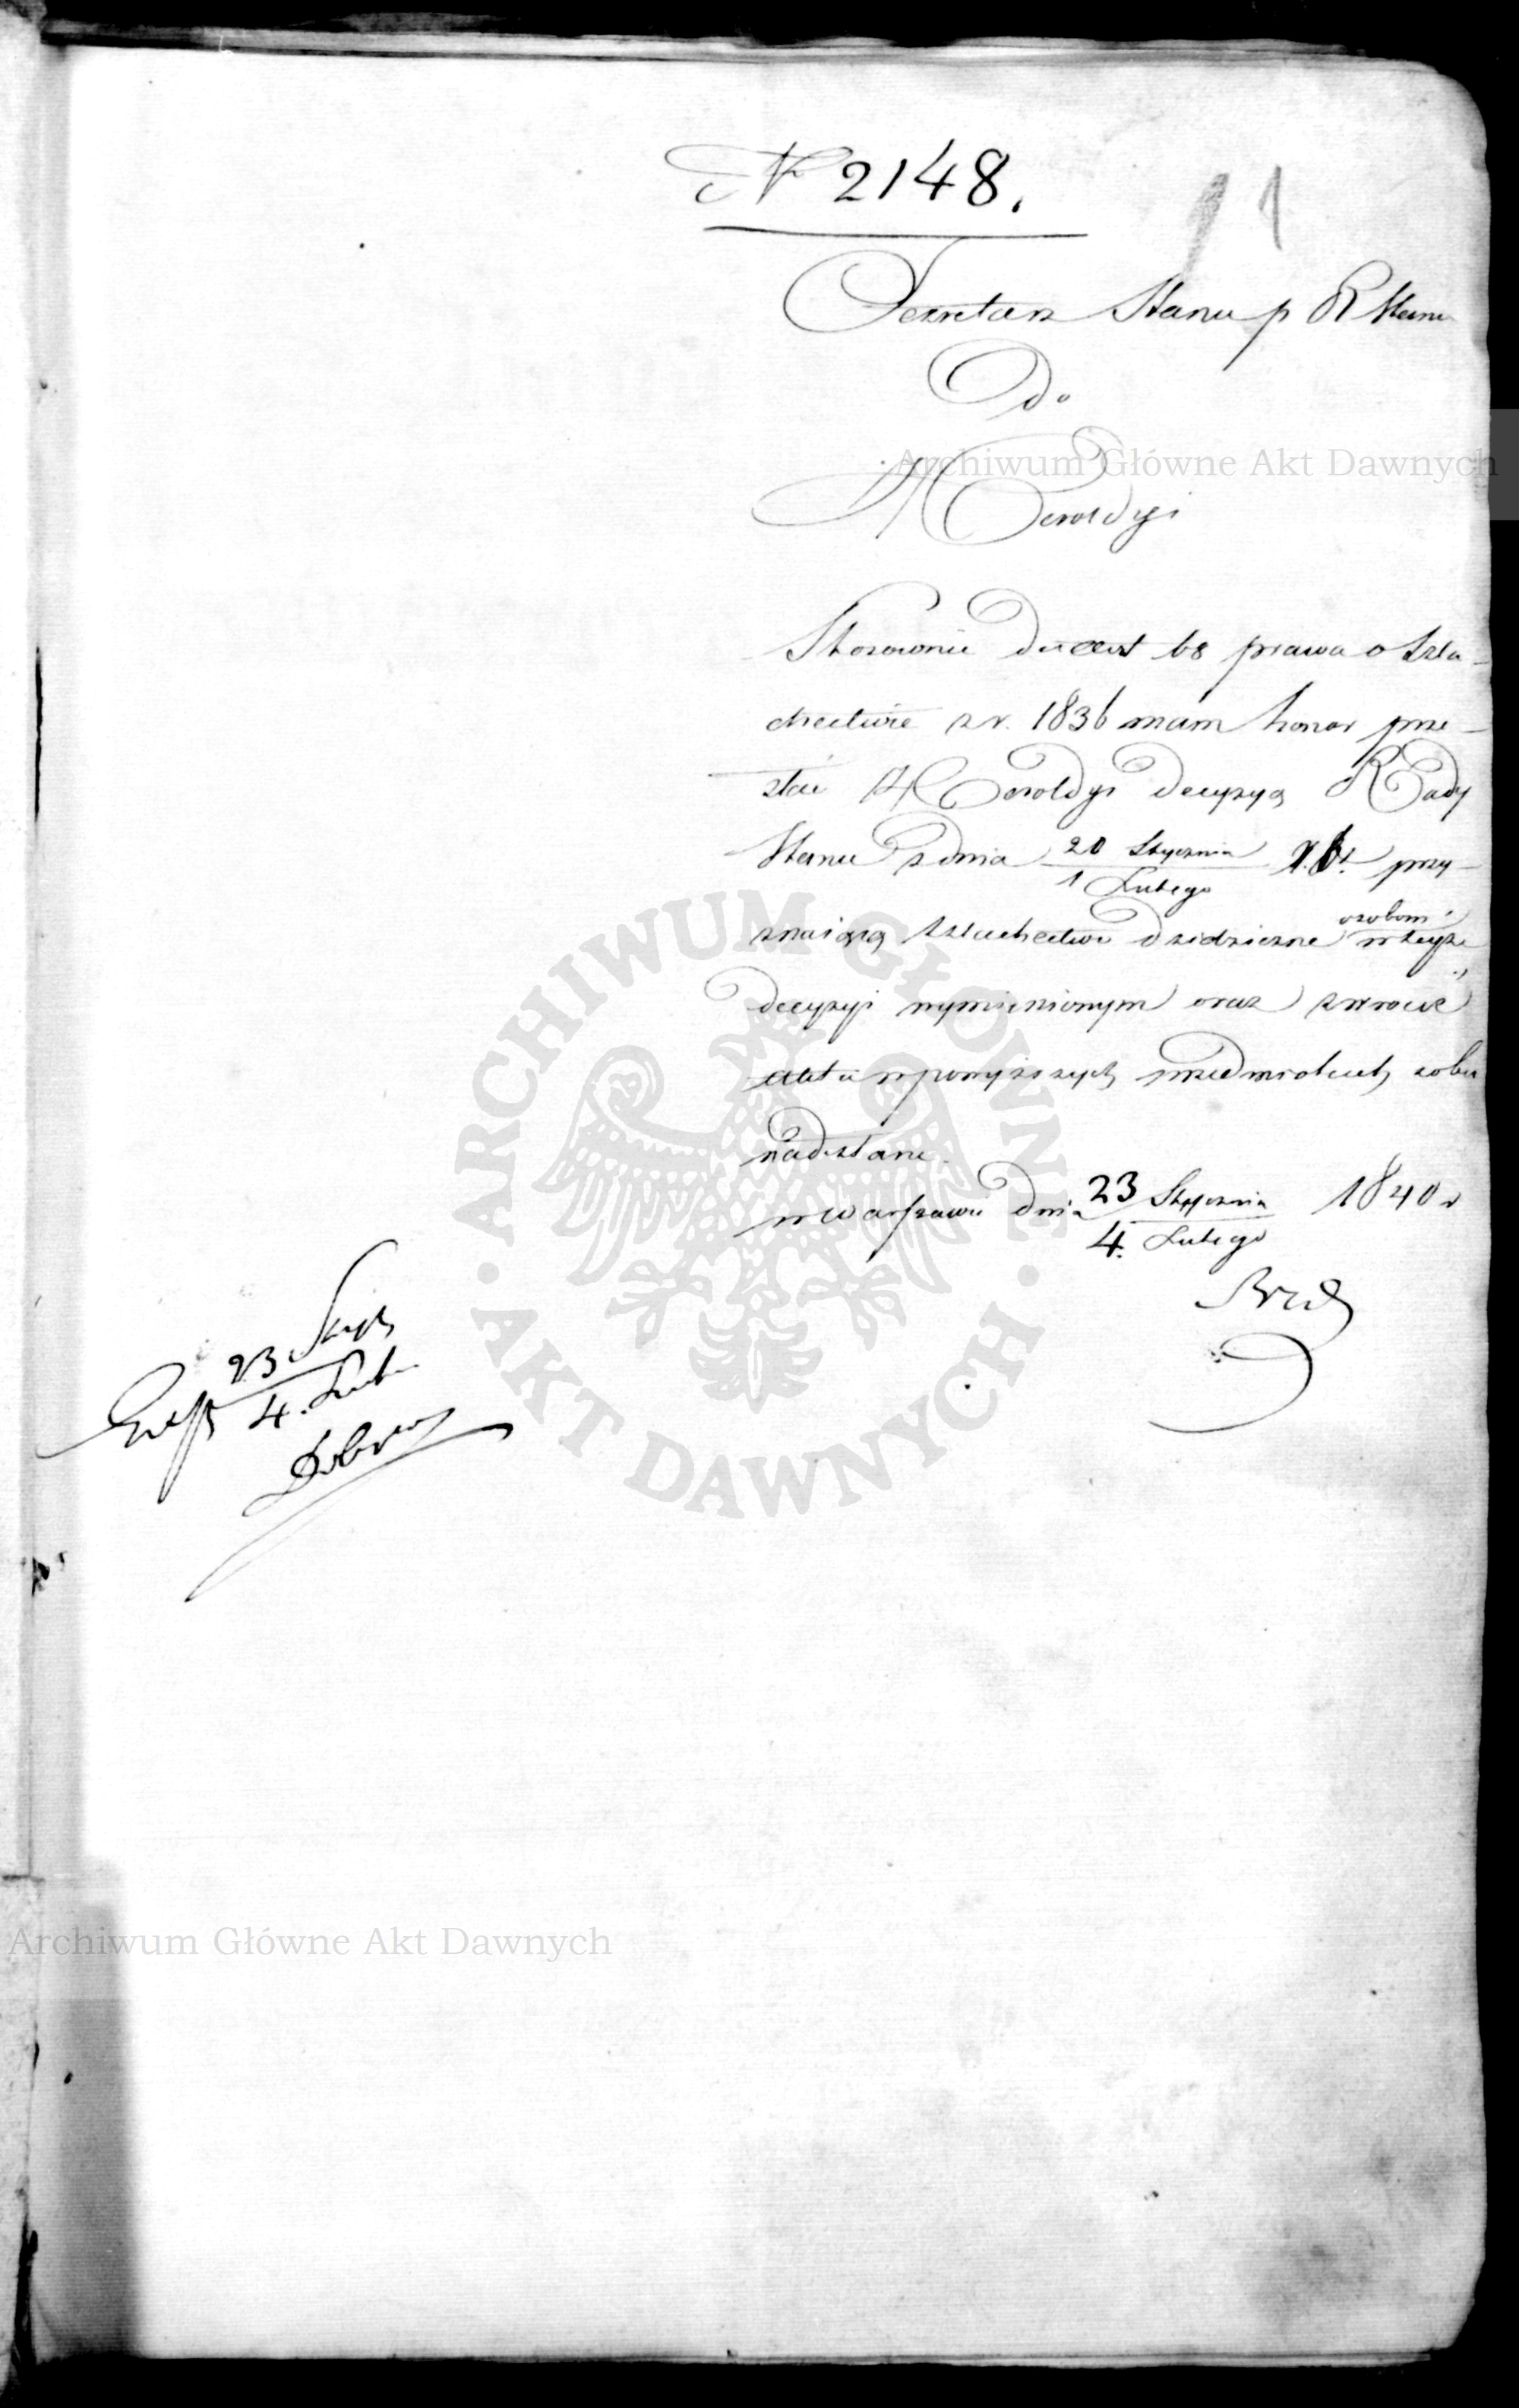 № 2148.
1
Sekretarz Stanu p R Stanu
Do
Heroldyi
Stosownie do art 68 prawa o Szla-
chectwie z r. 1836 mam honor prze-
słać Heroldyi decyzyą Rady
Stanu z dnia 20 Stycznia r. b. przy-
1 Lutego
znaiącą szlachectwo dziedziczne osobom w teyże
decyzyi wymienionym oraz zwrócić
akta w powyższych przedmiotach sobie
nadesłane.
w Warszawie dnia 23 Stycznia 1840 r
4. Lutego
23 Stycz
4. Lut.
Archiwum Główne Akt Dawnych
ARCHIWUM GŁÓWNE
· AKT DAWNYCH ·
Archiwum Główne Akt Dawnych